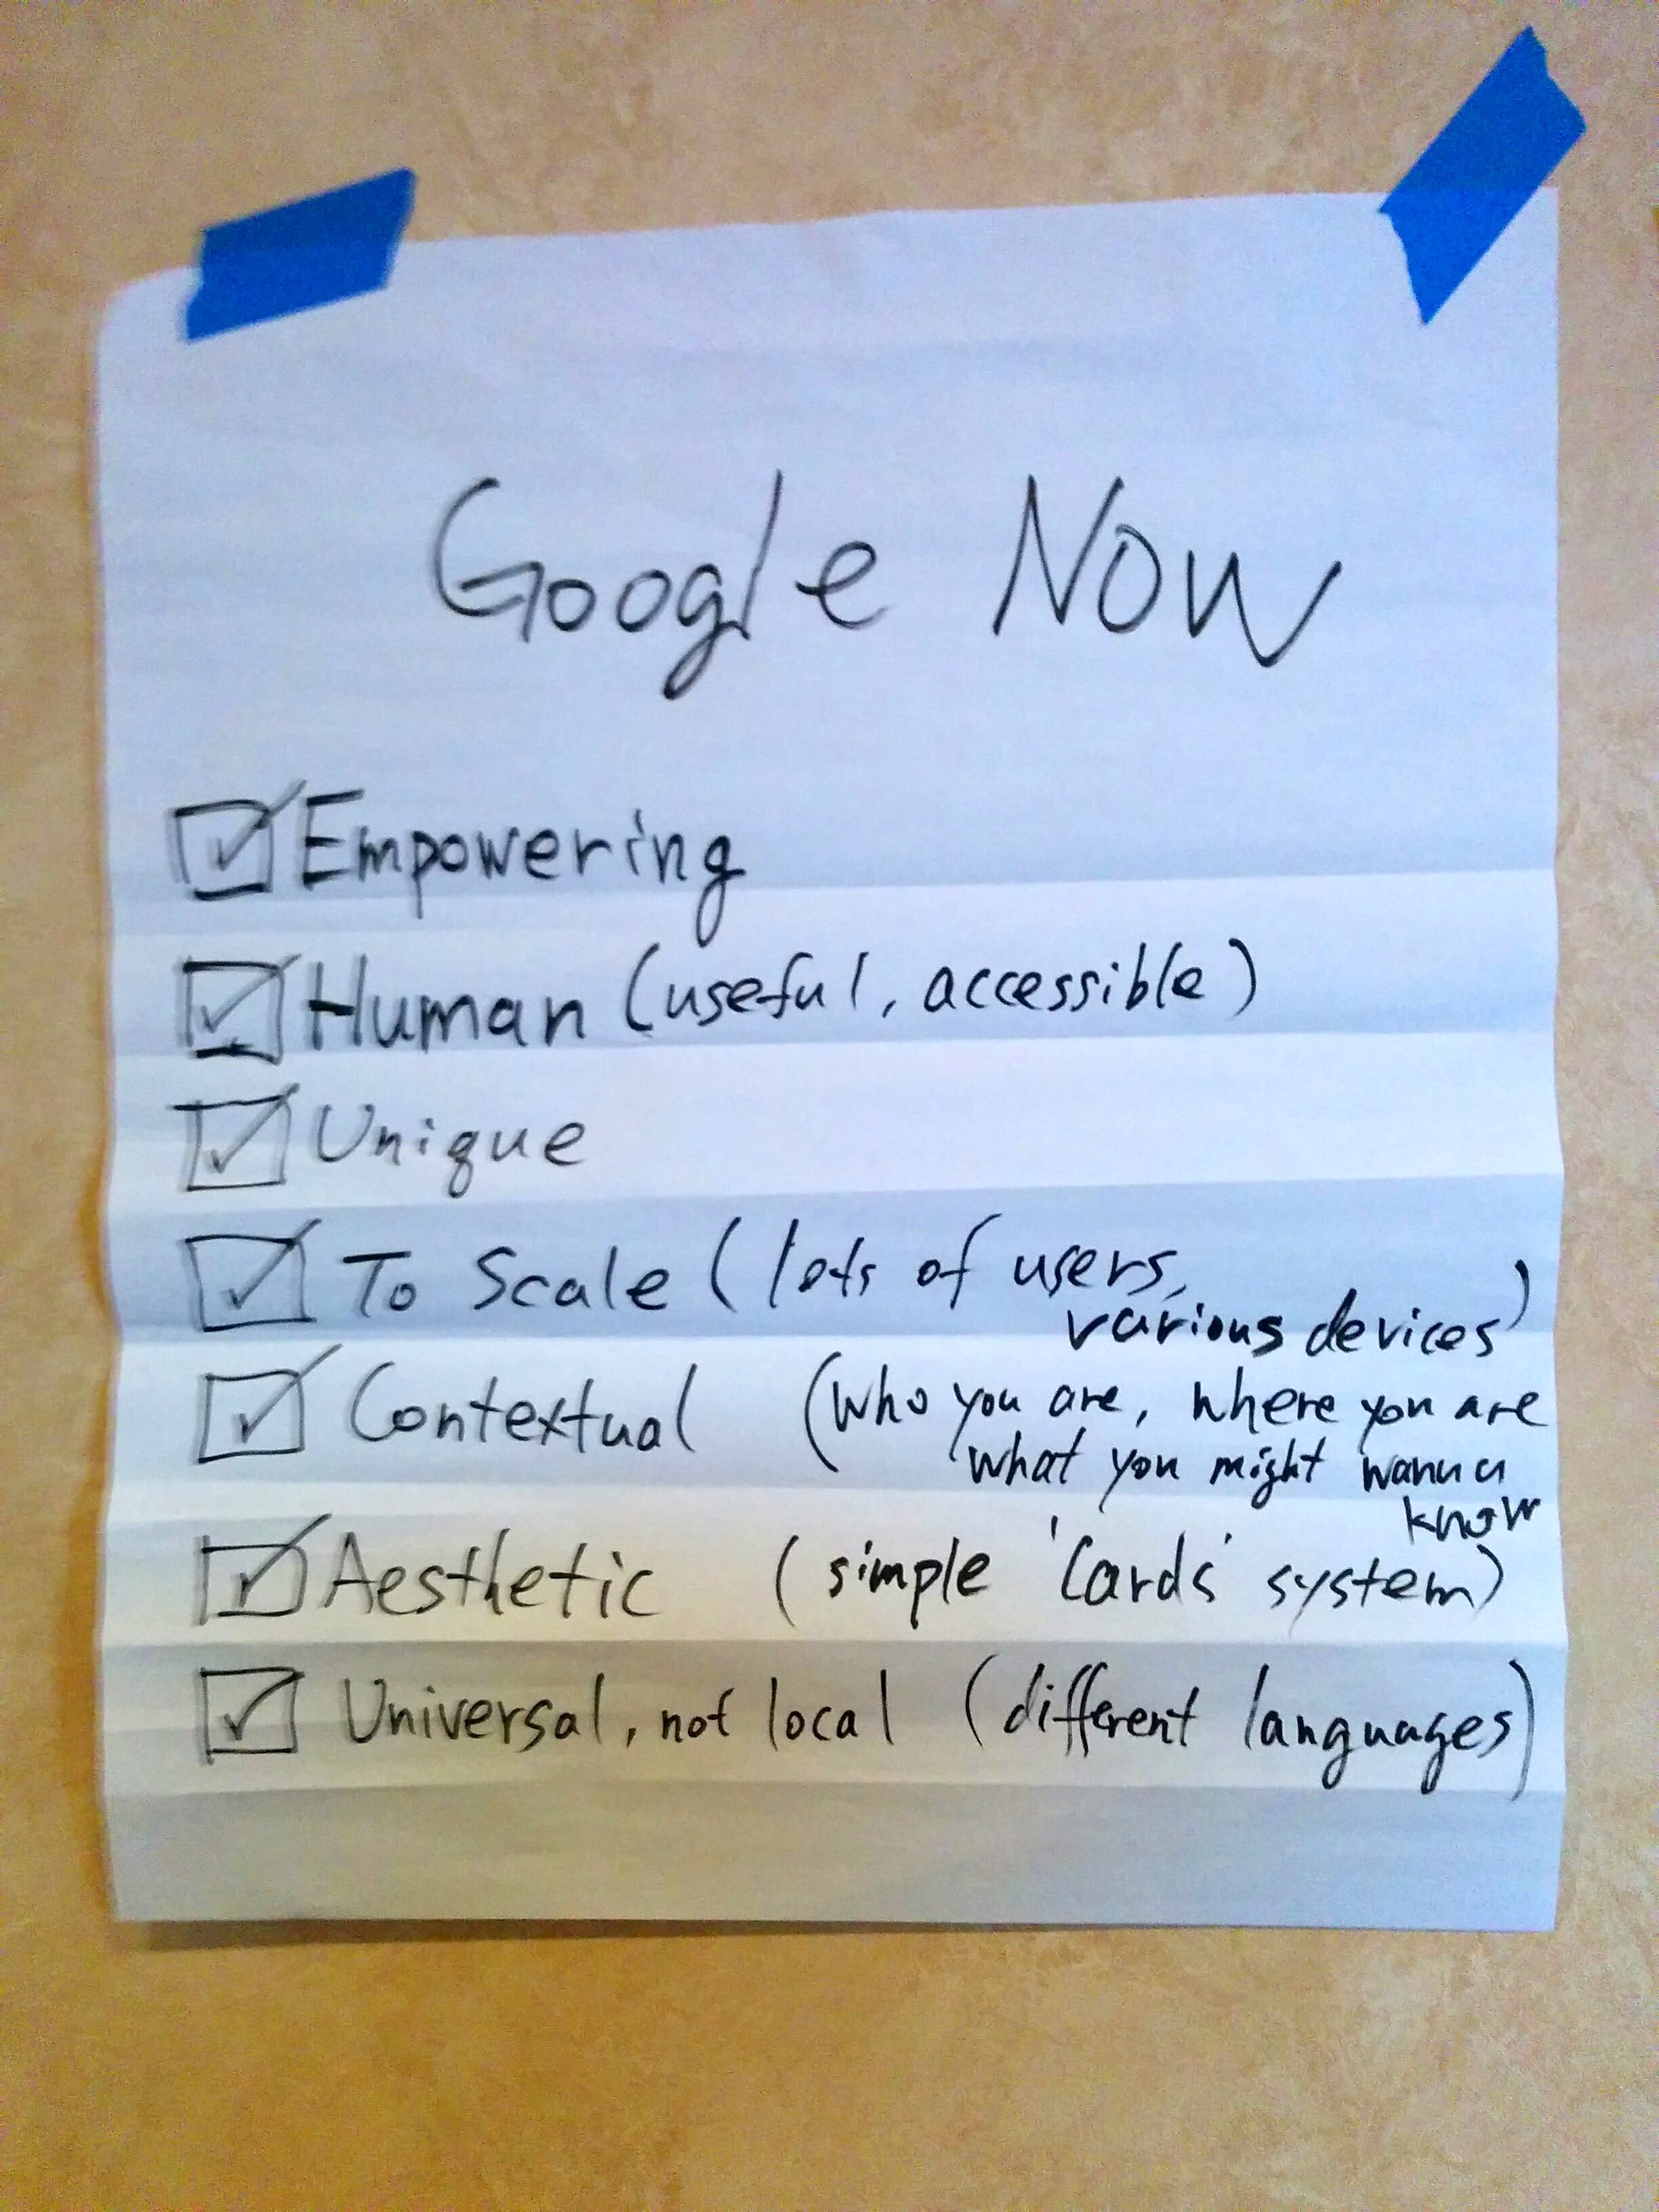 Google Now
☑ Empowering
☑ Human (useful, accessible)
☑ Unique
☑ To Scale (lots of users,
various devices)
☑ Contextual (who you are, where you are
what you might wanna
know
☑ Aesthetic (simple 'Cards' system)
☑ Universal, not local (different languages)